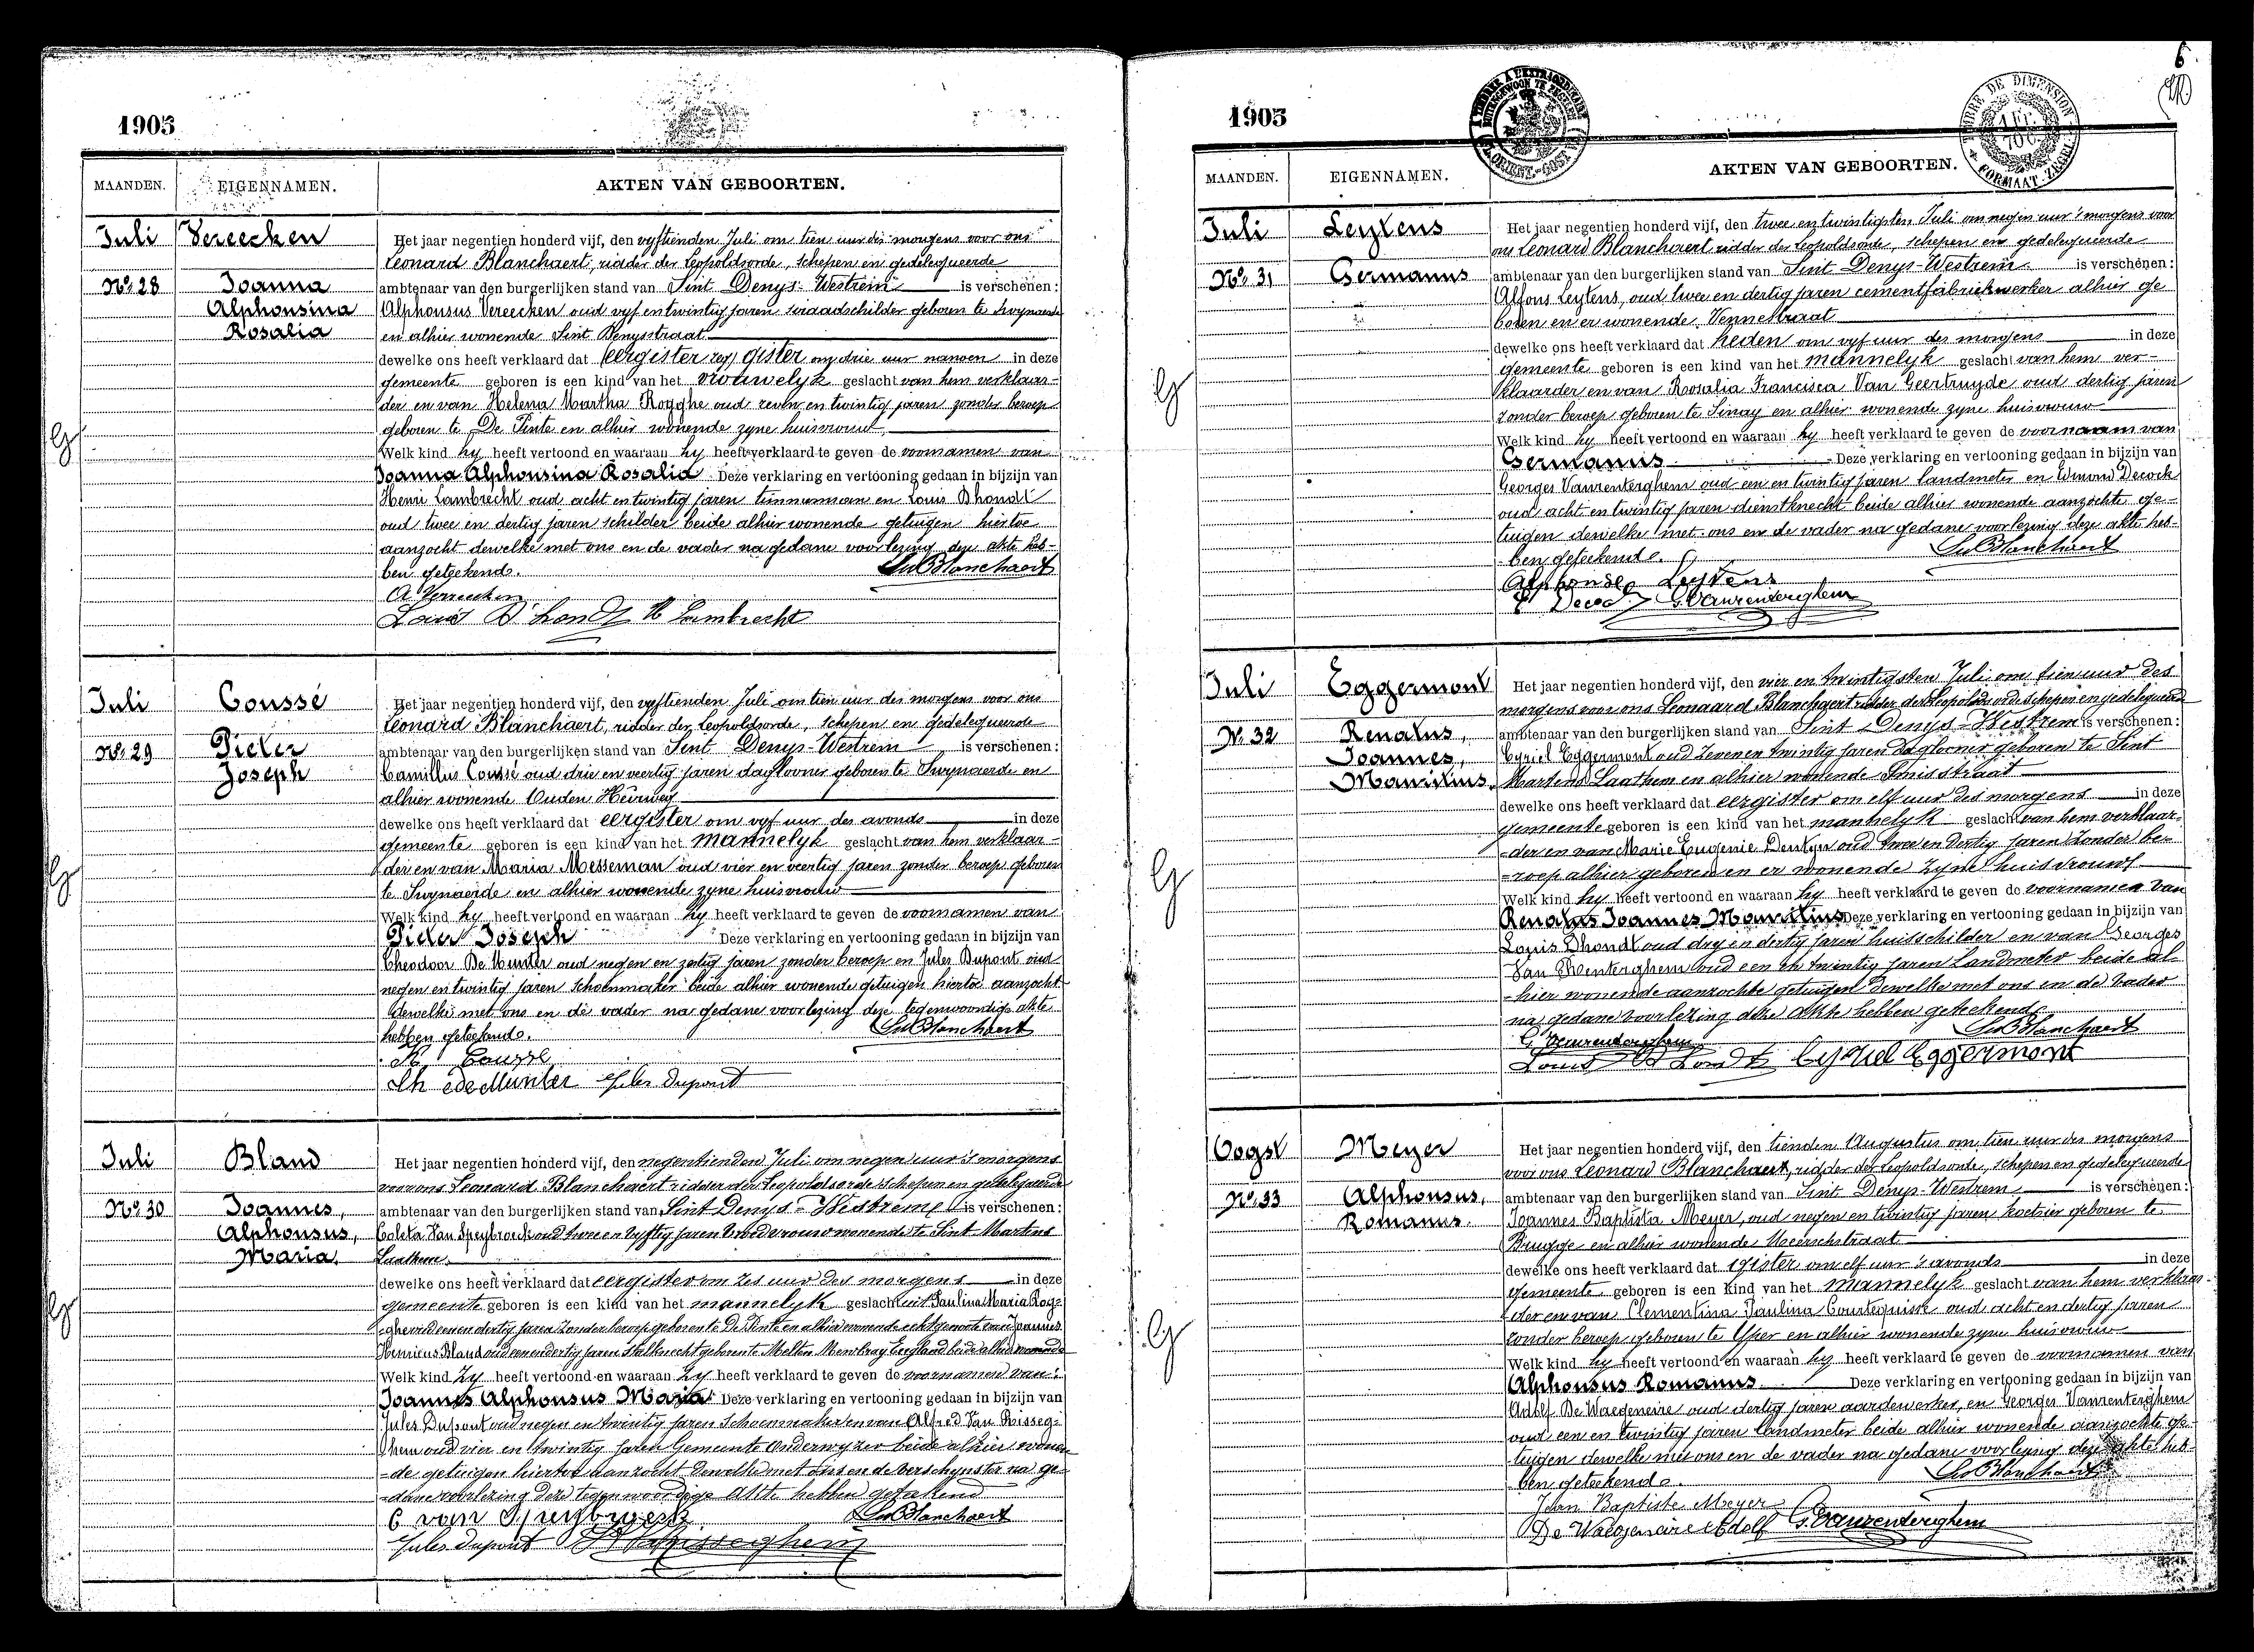 1905
MAANDEN.
EIGENNAMEN.
AKTEN VAN GEBOORTEN.
Juli
Vereecken
Nº 28
Joanna
Alphonsina
Rosalia
Het jaar negentien honderd vijf, den vyftienden Juli om tien uur des morgens voor ons
Leonard Blanchaert, ridder der Leopoldsorde, schepen en gedelegueerde
ambtenaar van den burgerlijken stand van Sint Denys-Westrem is verschenen:
Alphonsus Vereecken oud vyf en twintig jaren sieraadschilder geboren te Swynaerde
en alhier wonende Sint Denysstraat
dewelke ons heeft verklaard dat gister om drie uur nanoen in deze
gemeente geboren is een kind van het vrouwelyk geslacht van hem verklaar-
der en van Helena Martha Rogghe oud zeven en twintig jaren zonder beroep
geboren te De Pinte en alhier wonende zyne huisvrouw
Welk kind hy heeft vertoond en waaraan hy heeft verklaard te geven de voornamen van
Joanna Alphonsina Rosalia Deze verklaring en vertooning gedaan in bijzijn van
Henri Lambrecht oud acht en twintig jaren timmerman en Louis Dhondt
oud twee en dertig jaren schilder beide alhier wonende getuigen hiertoe
aanzocht dewelke met ons en de vader na gedane voorlezing deze akte heb-
ben geteekend.
LBlanchaert
A Vereecken
Louis D'hondt H Lambrecht
Juli
Coussé
Nº 29
Pieter
Joseph
Het jaar negentien honderd vijf, den vyftienden Juli om tien uur des morgens voor ons
Leonard Blanchaert, ridder der Leopoldsorde, schepen en gedelegueerde
ambtenaar van den burgerlijken stand van Sint Denys-Westrem is verschenen:
Camillus Coussé oud drie en veertig jaren daglooner geboren te Swynaerde en
alhier wonende Ouden Heirweg
dewelke ons heeft verklaard dat eergister om vyf uur des avonds in deze
gemeente geboren is een kind van het mannelyk geslacht van hem verklaar-
der en van Maria Messeman oud vier en veertig jaren zonder beroep geboren
te Swynaerde en alhier wonende zyne huisvrouw
Welk kind hy heeft vertoond en waaraan hy heeft verklaard te geven de voornamen van
Pieter Joseph Deze verklaring en vertooning gedaan in bijzijn van
Theodoor De Munter oud negen en zestig jaren zonder beroep en Jules Dupont oud
negen en twintig jaren schoenmaker beide alhier wonende getuigen hiertoe aanzocht
dewelke met ons en de vader na gedane voorlezing deze tegenwoordige akte
hebben geteekend.
LBlanchaert
K Cousse
Th De Munter Jules Dupont
Juli
Bland
Nº 30
Joannes,
Alphonsus,
Maria.
Het jaar negentien honderd vijf, den negentienden Juli om negen uur 's morgens
voor ons Leonard Blanchaert ridder der Leopoldsorde schepen en gedelegueerde
ambtenaar van den burgerlijken stand van Sint Denys-Westrem is verschenen:
Coleta Van Speybroeck oud twee en vyftig jaren vroedvrouw wonende te Sint Martens
Laathem.
dewelke ons heeft verklaard dat eergister om zes uur des morgens in deze
gemeente geboren is een kind van het mannelyk geslacht uit Paulina Maria Rog-
ghe oud een en dertig jaren zonder beroep geboren te De Pinte en alhier wonende echtgenoote van Joannes
Henricus Bland oud een en dertig jaren Stalknecht geboren te Melton Mowbray Engeland beide alhier wonende
Welk kind Zy heeft vertoond en waaraan Zy heeft verklaard te geven de voornamen van:
Joannes Alphonsus Maria Deze verklaring en vertooning gedaan in bijzijn van
Jules Dupont oud negen en twintig jaren Schoenmaker en van Alfred Van Risseg-
hem oud vier en twintig jaren Gemeente Onderwyzer beide alhier wonen-
-de getuigen hiertoe aanzocht dewelke met ons en de verschynster na ge-
-dane voorlezing deze tegenwoordige akte hebben geteekend
C van Speybroeck
LBlanchaert
Jules Dupont A VaRisseghem
6
1905
TIMBRE DE DIMENSION
FORMAAT-ZEGEL
MAANDEN.
EIGENNAMEN.
AKTEN VAN GEBOORTEN.
Juli
Leytens
Nº 31
Germanus
Het jaar negentien honderd vijf, den twee en twintigsten Juli om negen uur 's morgens voor
ons Leonard Blanchaert ridder der Leopoldsorde, schepen en gedelegueerde
ambtenaar van den burgerlijken stand van Sint Denys-Westrem is verschenen:
Alfons Leytens, oud twee en dertig jaren cementfabriekwerker alhier ge
boren en er wonende Vennestraat
dewelke ons heeft verklaard dat heden om vyf uur des morgens in deze
gemeente geboren is een kind van het mannelyk geslacht van hem ver-
klaarder en van Rosalia Francisca Van Geertruyde oud dertig jaren
zonder beroep geboren te Sinay en alhier wonende zyne huisvrouw
Welk kind hy heeft vertoond en waaraan hy heeft verklaard te geven de voornaam van
Germanus Deze verklaring en vertooning gedaan in bijzijn van
Georges Vanrenterghem oud een en twintig jaren landmeter en Decock
oud acht en twintig jaren dienstknecht beide alhier wonende aanzochte ge-
tuigen dewelke met ons en de vader na gedane voorlezing deze akte heb-
ben geteekend.
LBlanchaert
Alphonse Leytens
E Decock G. Vanrenterghem
Juli
Eggermont
Nº 32
Renatus,
Joannes,
Mauritius.
Het jaar negentien honderd vijf, den vier en twintigsten Juli om tien uur des
morgens voor ons Leonaard Blanchaert ridder der Leopolds orde schepen en gedelegueerd
ambtenaar van den burgerlijken stand van Sint Denys-Westrem is verschenen:
Cyriel Eggermont oud zeven en twintig jaren daglooner geboren te Sint
Martens Laathem en alhier wonende straat
dewelke ons heeft verklaard dat eergister om elf uur des morgens in deze
gemeente geboren is een kind van het mannelyk geslacht van hem verklaar-
-der en van Marie Eugenie oud twee en dertig jaren zonder be-
-roep alhier geboren en er wonende zyne huisvrouw
Welk kind hy heeft vertoond en waaraan hy heeft verklaard te geven de voornamen van
Renatus Joannes Mauritius Deze verklaring en vertooning gedaan in bijzijn van
Louis Dhondt oud dry en dertig jaren huisschilder en van Georges
Van Renterghem oud een en twintig jaren Landmeter beide al-
-hier wonende aanzochte getuigen dewelke met ons en de vader
na gedane voorlezing deze akte hebben geteekend.
LBlanchaert
G. Vanrenterghem
Louis D'hondt Cyriel Eggermont
Oogst
Meyer
Nº 33
Alphonsus,
Romanus.
Het jaar negentien honderd vijf, den tienden Augustus om tien uur des morgens
voor ons Leonard Blanchaert, ridder der Leopoldsorde, schepen en gedelegueerde
ambtenaar van den burgerlijken stand van Sint Denys-Westrem is verschenen:
Joannes Baptista Meyer, oud negen en twintig jaren koetsier geboren te
Brugge en alhier wonende Meerschstraat
dewelke ons heeft verklaard dat gister om elf uur 's avonds in deze
gemeente geboren is een kind van het mannelyk geslacht van hem verklaar-
der en van Clementina Paulina Courtequisse oud acht en dertig jaren
zonder beroep geboren te Yper en alhier wonende zyne huisvrouw
Welk kind hy heeft vertoond en waaraan hy heeft verklaard te geven de voornamen van
Alphonsus Romanus Deze verklaring en vertooning gedaan in bijzijn van
Adolf De Waegeneire oud dertig jaren aardewerker, en Georges Vanrenterghem
oud een en twintig jaren landmeter beide alhier wonende aanzochte ge-
tuigen dewelke met ons en de vader na gedane voorlezing deze akte heb-
ben geteekend.
LBlanchaert
Jean Baptiste Meyer
De Waegeneire Adolf G. Vanrenterghem